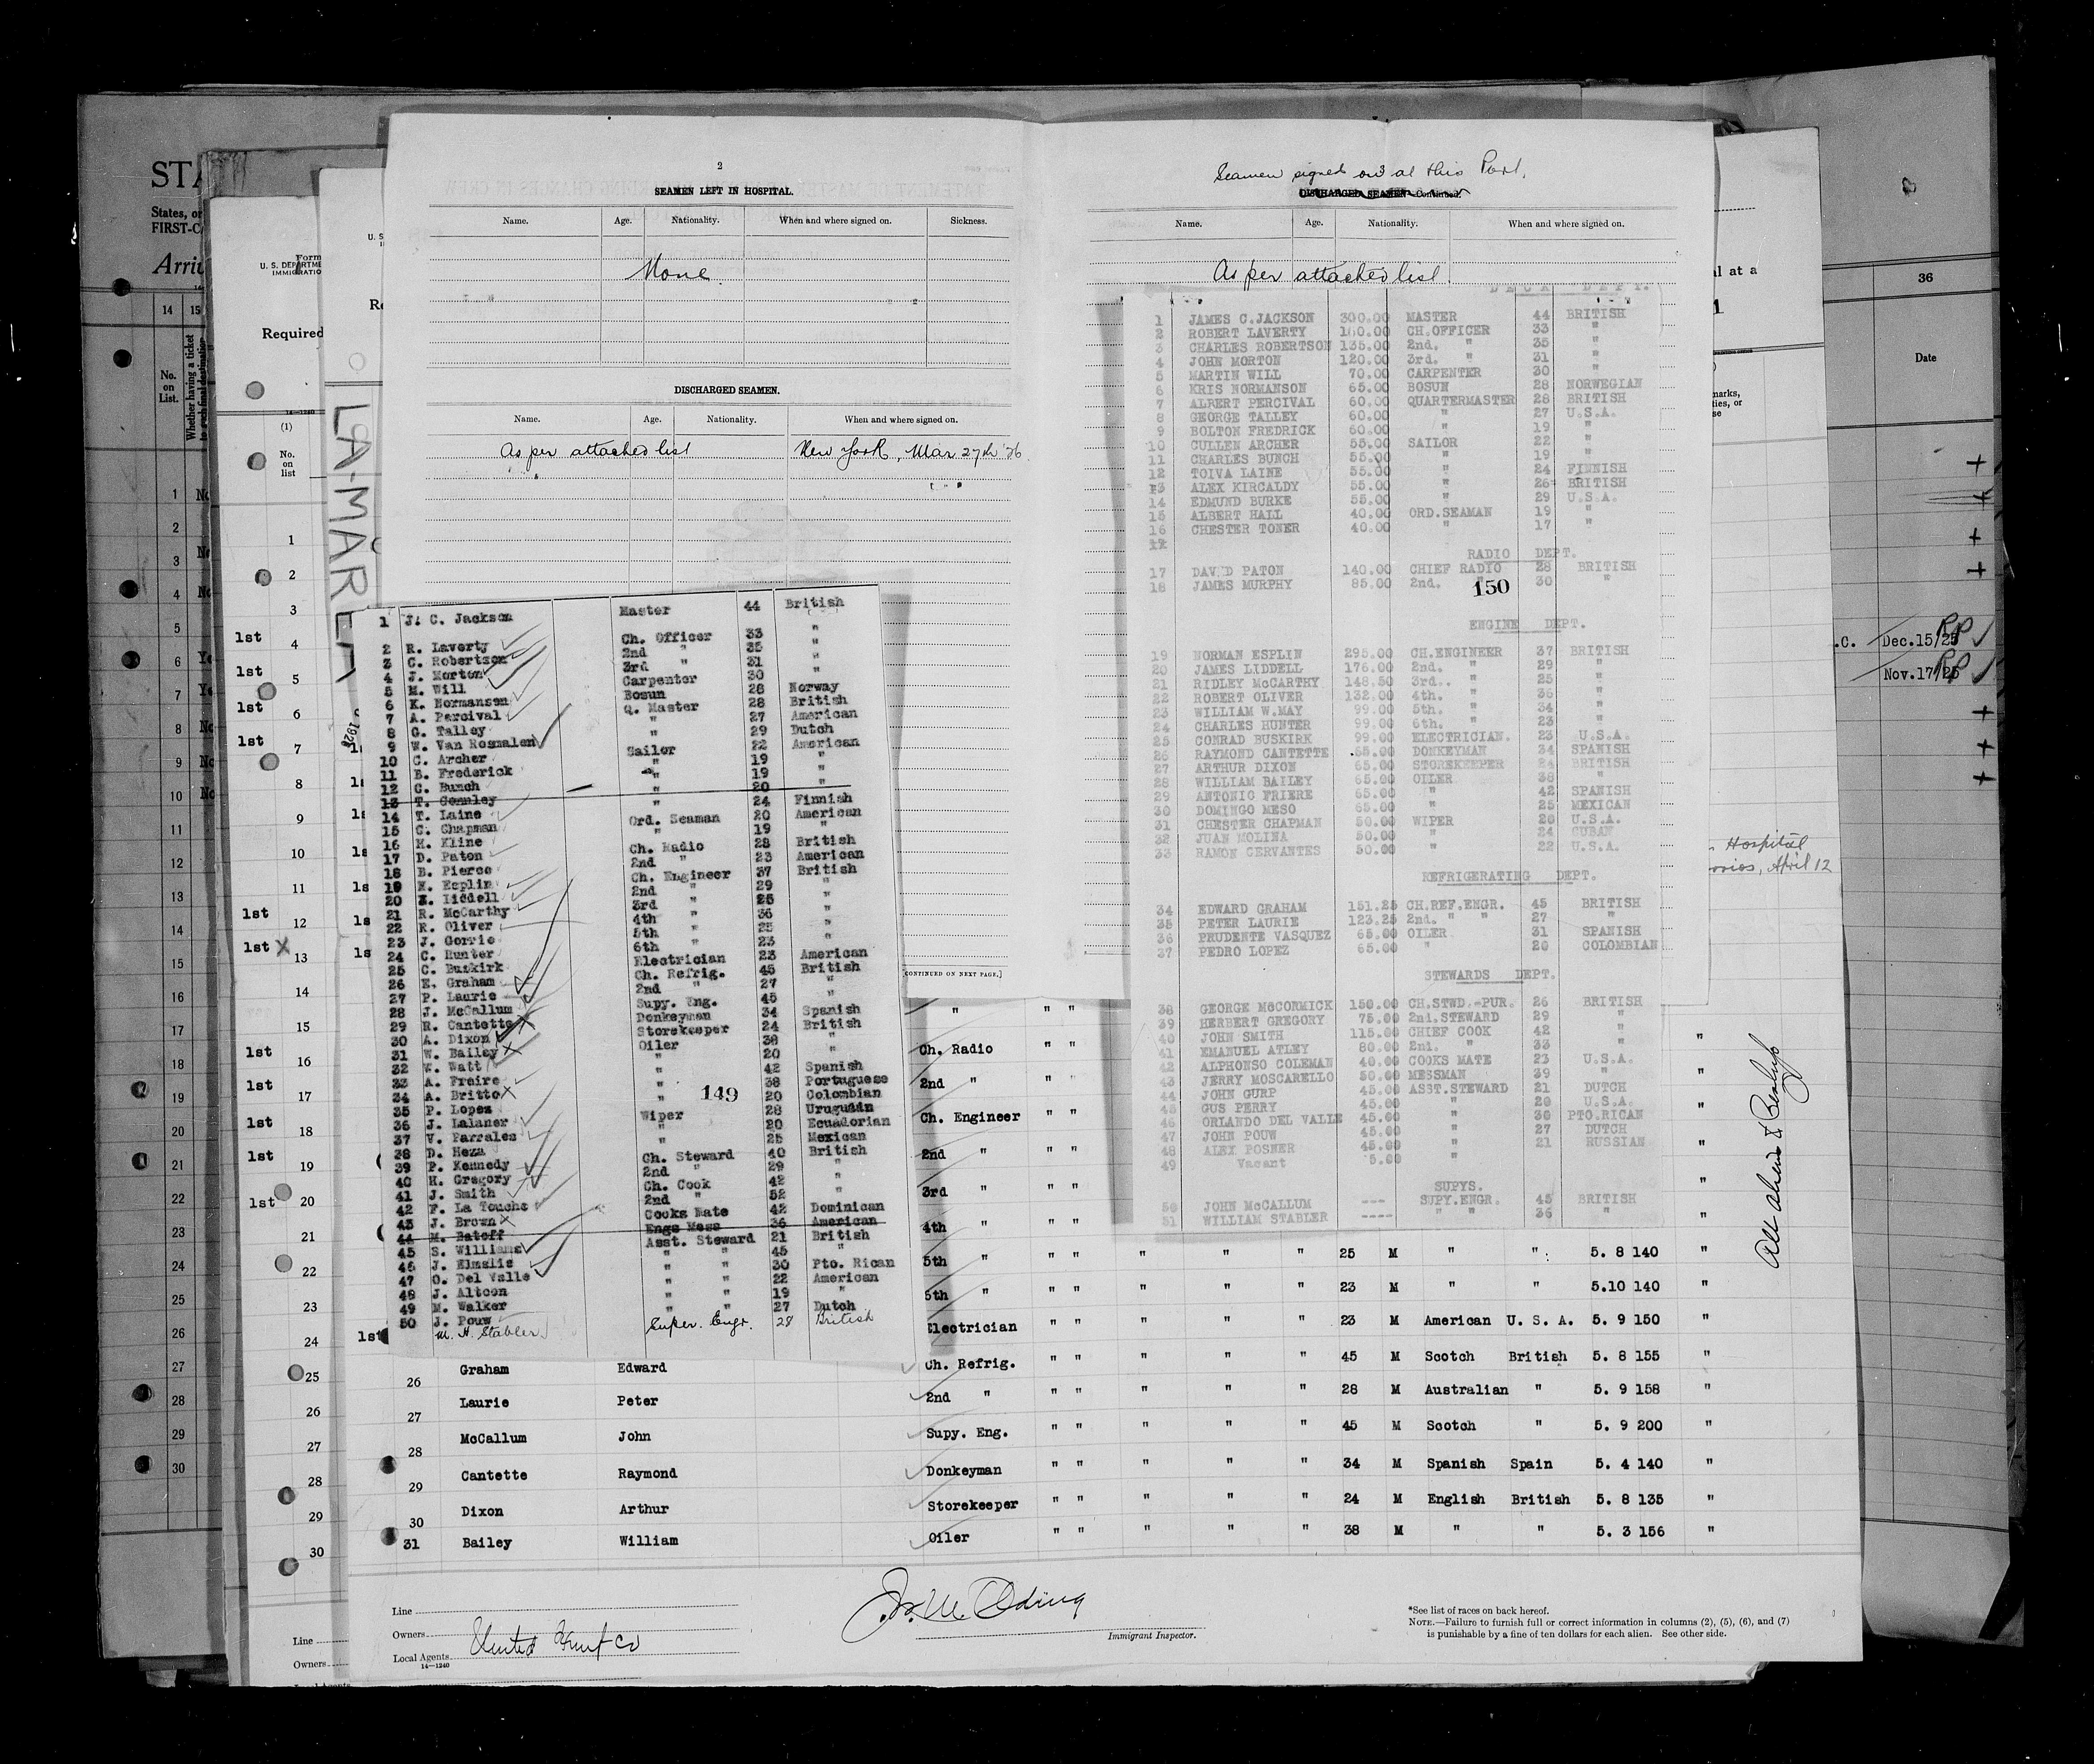 2
SEAMEN LEFT IN HOSPITAL.
Name. Age. Nationality. When and where signed on. Sickness.
None
DISCHARGED SEAMEN.
Name. Age. Nationality. When and where signed on.
As per attached list New York, Mar 27th '26
1 J. C. Jackson Master 44 British
2 R. Laverty Ch. Officer 33 "
3 C. Robertson 2nd " 35 "
4 J. Morton 3rd " 31 "
5 M. Will Carpenter 30 "
6 K. Normansen Bosun 28 Norway
7 A. Percival Q. Master 28 British
8 G. Talley " 27 American
9 W. Van Rosmalen " 29 Dutch
10 C. Archer Sailor 22 American
11 B. Frederick " 19 "
12 C. Bunch " 19 "
13 T. Gormley " 20 "
14 T. Laine " 24 Finnish
15 C. Chapman Ord. Seaman 20 American
16 H. Kline " 19 "
17 D. Paton Ch. Radio 28 British
18 B. Pierce 2nd " 23 American
19 N. Esplin Ch. Engineer 37 British
20 J. Liddell 2nd " 29 "
21 R. McCarthy 3rd " 25 "
22 R. Oliver 4th " 36 "
23 J. Gorrie 5th " 25 "
24 C. Hunter 6th " 23 "
25 C. Buskirk Electrician 23 American
26 E. Graham Ch. Refrig. 45 British
27 P. Laurie 2nd " 27 "
28 J. McCallum Supy. Eng. 45 "
29 R. Cantette Donkeyman 34 Spanish
30 A. Dixon Storekeeper 24 British
31 W. Bailey Oiler 38 "
32 W. Watt " 20 "
33 A. Freire " 42 Spanish
34 A. Britto " 38 Portuguese
35 P. Lopez " 20 Colombian
36 J. Lalaner Wiper 28 Uruguian
37 V. Parrales " 20 Ecuadorian
38 D. Heza " 25 Mexican
39 P. Kennedy Ch. Steward 40 British
40 H. Gregory 2nd " 29 "
41 J. Smith Ch. Cook 42 "
42 F. La Touche 2nd " 52 "
43 J. Brown Cooks Mate 42 Dominican
44 M. Batoff Engs Mess 36 American
45 S. Williams Asst. Steward 21 British
46 J. Elmslie " " 45 "
47 O. Del Valle " " 30 Pto. Rican
48 J. Altcon " " 22 American
49 M. Walker " " 19 "
50 J. Pouw " " 27 Dutch
W. H. Stabler Super. Engr. 28 British
149
[CONTINUED ON NEXT PAGE.]
Seamen signed on at this Port.
DISCHARGED SEAMEN—Continued.
Name. Age. Nationality. When and where signed on.
As per attached list
DECK DEPT.
1 JAMES C.JACKSON 300.00 MASTER 44 BRITISH
2 ROBERT LAVERTY 160.00 CH.OFFICER 33 "
3 CHARLES ROBERTSON 135.00 2nd. " 35 "
4 JOHN MORTON 120.00 3rd. " 31 "
5 MARTIN WILL 70.00 CARPENTER 30 "
6 KRIS NORMANSON 65.00 BOSUN 28 NORWEGIAN
7 ALBERT PERCIVAL 60.00 QUARTERMASTER 28 BRITISH
8 GEORGE TALLEY 60.00 " 27 U.S.A.
9 BOLTON FREDRICK 60.00 " 19 "
10 CULLEN ARCHER 55.00 SAILOR 22 "
11 CHARLES BUNCH 55.00 " 19 "
12 TOIVA LAINE 55.00 " 24 FINNISH
13 ALEX KIRCALDY 55.00 " 26 BRITISH
14 EDMUND BURKE 55.00 " 29 U.S.A.
15 ALBERT HALL 40.00 ORD.SEAMAN 19 "
16 CHESTER TONER 40.00 " 17 "
17
RADIO DEPT.
17 DAVID PATON 140.00 CHIEF RADIO 28 BRITISH
18 JAMES MURPHY 85.00 2nd. " 30 "
150
ENGINE DEPT.
19 NORMAN ESPLIN 295.00 CH.ENGINEER 37 BRITISH
20 JAMES LIDDELL 176.00 2nd. " 29 "
21 RIDLEY McCARTHY 148.50 3rd.. " 25 "
22 ROBERT OLIVER 132.00 4th. " 36 "
23 WILLIAM W.MAY 99.00 5th. " 34 "
24 CHARLES HUNTER 99.00 6th. " 23 "
25 CONRAD BUSKIRK 99.00 ELECTRICIAN. 23 U.S.A.
26 RAYMOND CANTETTE 65.00 DONKEYMAN 34 SPANISH
27 ARTHUR DIXON 65.00 STOREKEEPER 24 BRITISH
28 WILLIAM BAILEY 65.00 OILER 38 "
29 ANTONIC FRIERE 65.00 " 42 SPANISH
30 DOMINGO MESO 65.00 " 25 MEXICAN
31 CHESTER CHAPMAN 50.00 WIPER 20 U.S.A.
32 JUAN MOLINA 50.00 " 24 CUBAN
33 RAMON CERVANTES 50.00 " 22 U.S.A.
REFRIGERATING DEPT.
34 EDWARD GRAHAM 151.25 CH.REF.ENGR. 45 BRITISH
35 PETER LAURIE 123.25 2nd. " " 27 "
36 PRUDENTE VASQUEZ 65.00 OILER 31 SPANISH
37 PEDRO LOPEZ 65.00 " 20 COLOMBIAN
STEWARDS DEPT.
38 GEORGE McCORMICK 150.00 CH.STWD.-PUR. 26 BRITISH
39 HERBERT GREGORY 75.00 2nd.STEWARD 29 "
40 JOHN SMITH 115.00 CHIEF COOK 42 "
41 EMANUEL ATLEY 80.00 2nd. " 33 "
42 ALPHONSO COLEMAN 40.00 COOKS MATE 23 U.S.A.
43 JERRY MOSCARELLO 50.00 MESSMAN 39 "
44 JOHN GURP 45.00 ASST.STEWARD 21 DUTCH
45 GUS PERRY 45.00 " 20 U.S.A.
46 ORLANDO DEL VALLE 45.00 " 30 PTO.RICAN
47 JOHN POUW 45.00 " 27 DUTCH
48 ALEX POSNER 45.00 " 21 RUSSIAN
49 Vacant 5.00 "
SUPYS.
50 JOHN McCALLUM --- SUPY.ENGR. 45 BRITISH
51 WILLIAM STABLER ---- " " 36 "
" " "
Ch. Radio " "
2nd " " "
Ch. Engineer " "
2nd " " "
3rd " " "
4th "
5th " " " " " " 25 M " " 5. 8 140 "
5th " " " " " " 23 M " " 5.10 140 "
Electrician " " " " " 23 M American U. S. A. 5. 9 150 "
26 Graham Edward Ch. Refrig. " " " " " 45 M Scotch British 5. 8 155 "
27 Laurie Peter 2nd " " " " " " 28 M Australian " 5. 9 158 "
28 McCallum John Supy. Eng. " " " " " 45 M Scotch " 5. 9 200 "
29 Cantette Raymond Donkeyman " " " " " 34 M Spanish Spain 5. 4 140 "
30 Dixon Arthur Storekeeper " " " " " 24 M English British 5. 8 135 "
31 Bailey William Oiler " " " " " 38 M " " 5. 3 156 "
Line
Owners
Local Agents United Fruit Co
14—1240
Immigrant Inspector.
*See list of races on back hereof.
NOTE.—Failure to furnish full or correct information in columns (2), (5), (6), and (7)
is punishable by a fine of ten dollars for each alien. See other side.
STA
States, or
FIRST-C
Arri
14 15
No. on List.
Whether having a ticket to such final destination
1
2
3
4
5
6
7
8
9
10
11
12
13
14
15
16
17
18
19
20
21
22
23
24
25
26
27
28
29
30
Form
U. S. DEPARTME
IMMIGRATIO
Required
14—1240
(1)
No. on list
1
2
3
1st 4
1st 5
1st 6
1st 7
8
9
10
11
1st 12
1st X 13
14
15
1st 16
1st 17
1st 18
1st 19
1st 20
21
22
23
24
25
26
27
28
29
30
Line
Owners
U. S
Re
LA-MAREA
1st
al at a
1
marks,
ties, or
se
36
Date
.C. Dec.15/25
Nov.17/25
RP
RP
Hospital
April 12